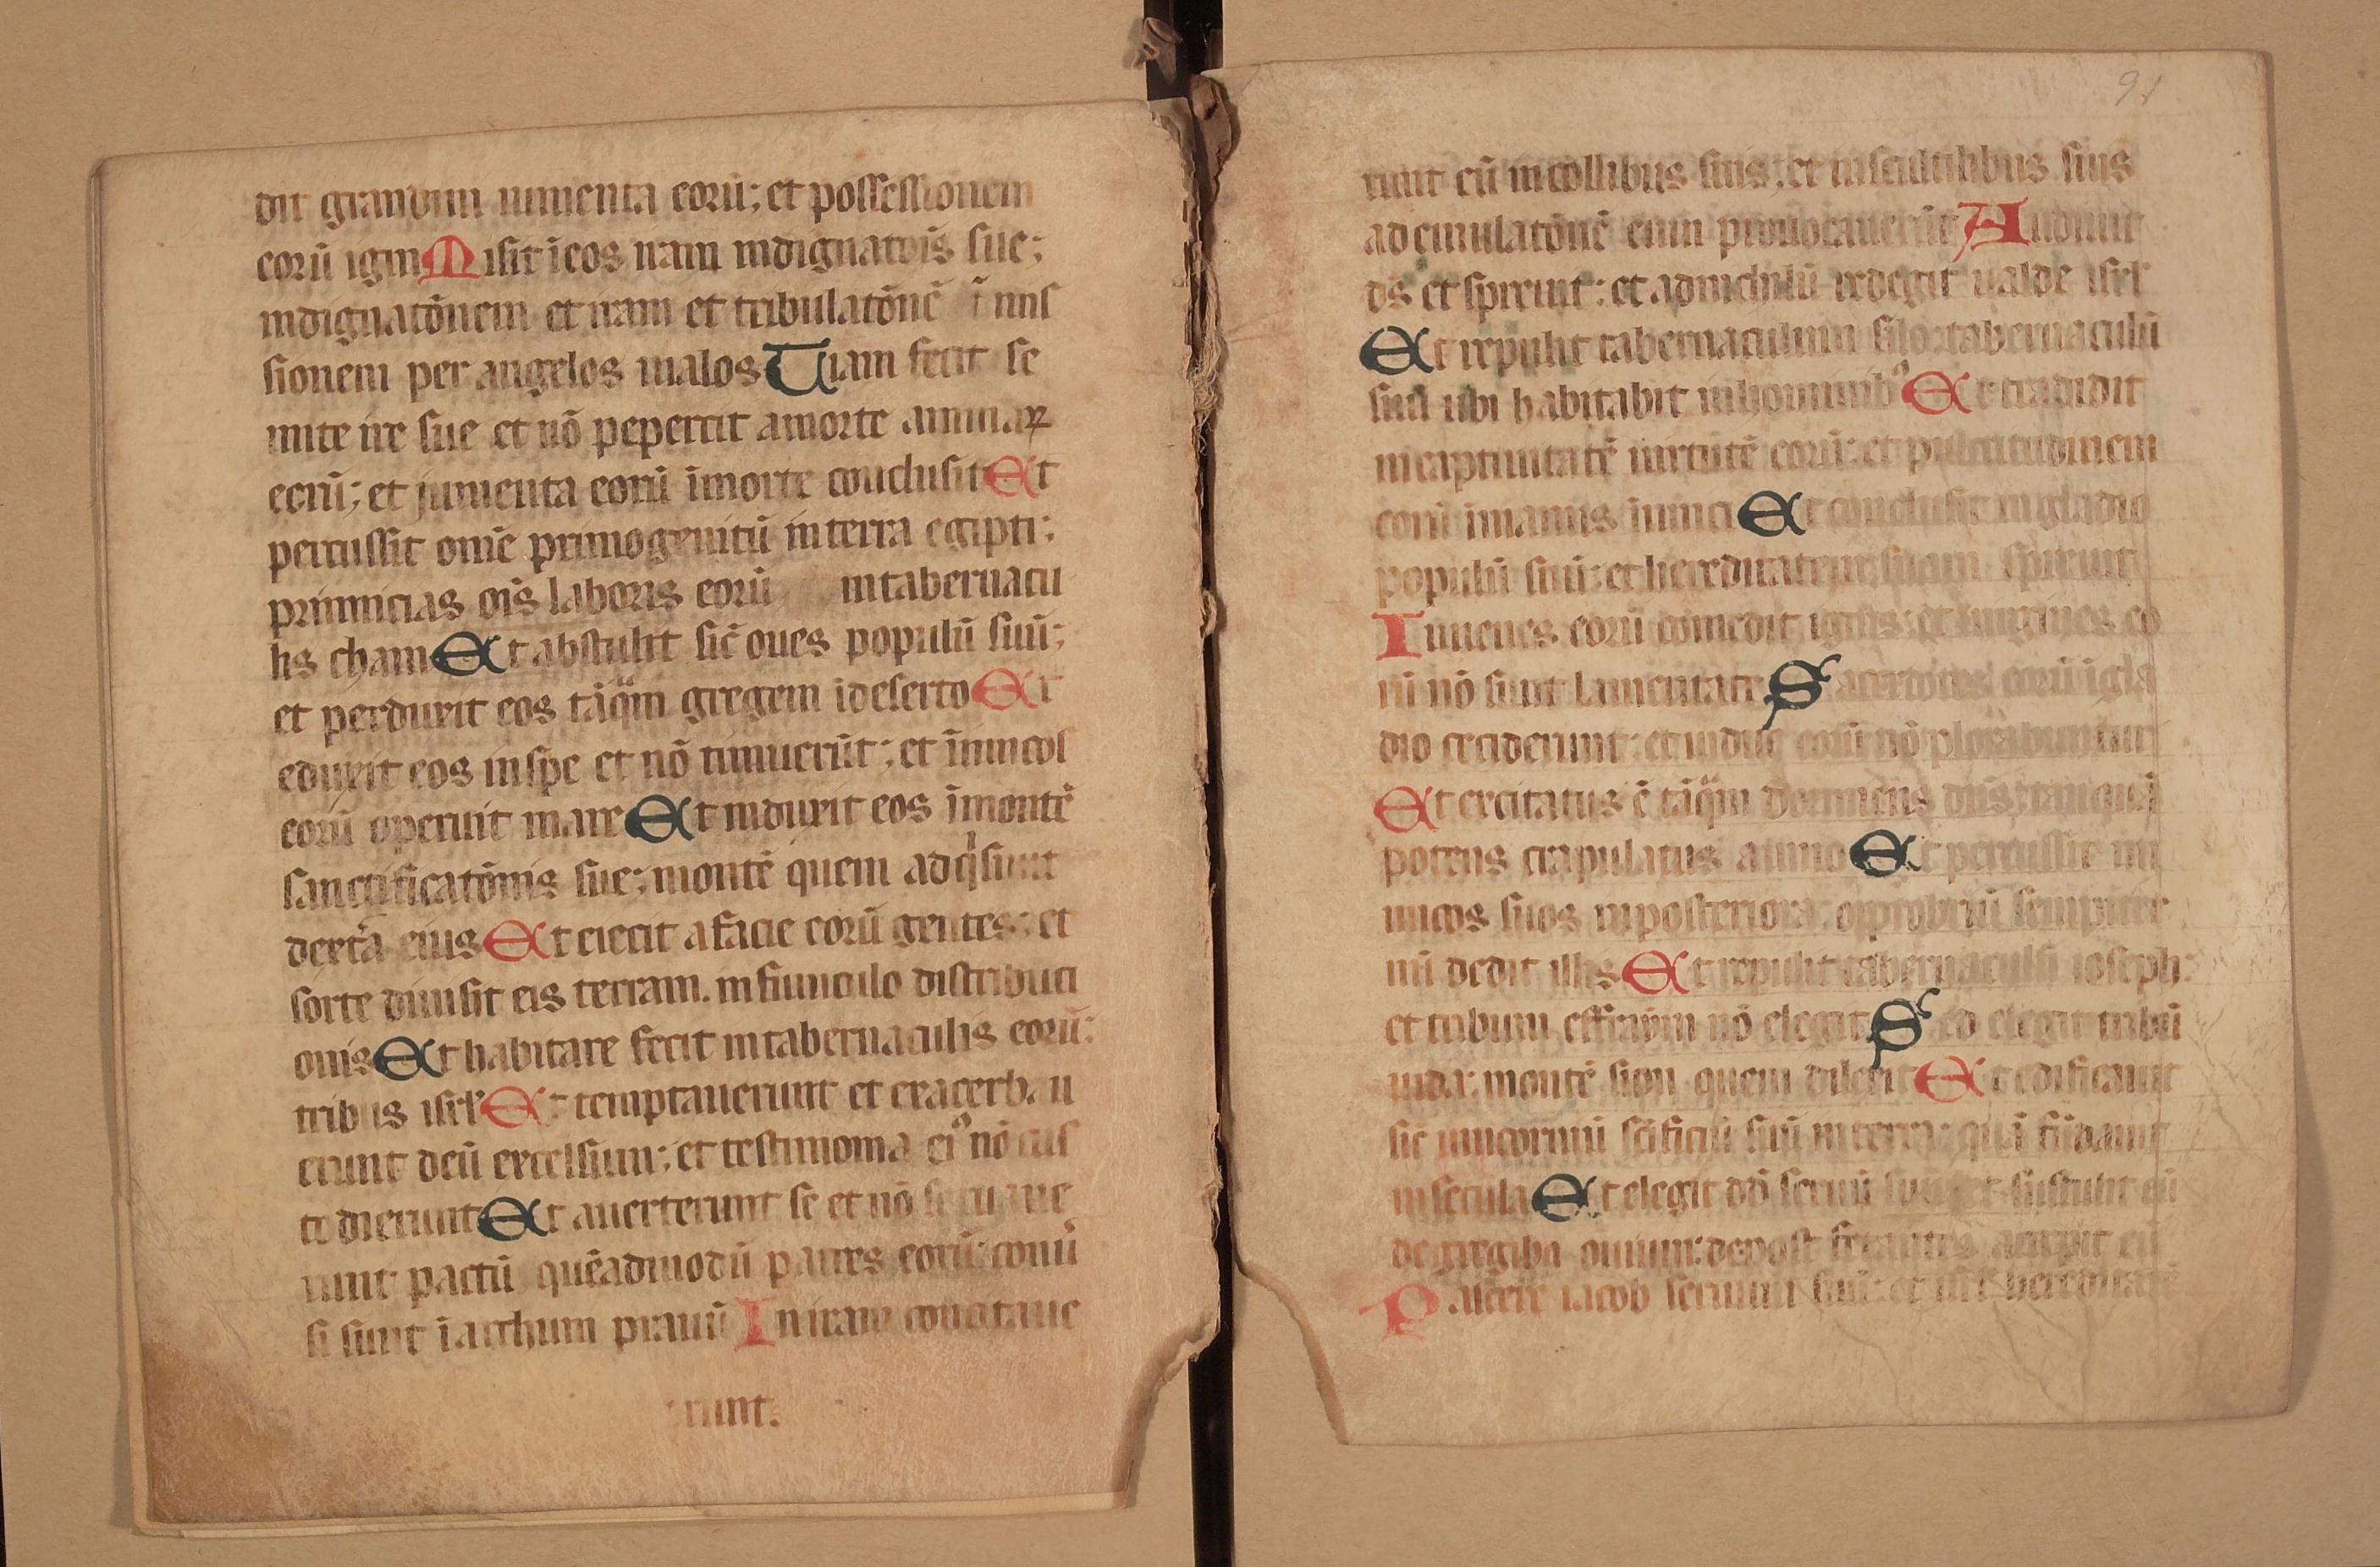 dit grandini iumenta eorū; et possessionem
eorū igni Misit ieos iram indignatōis sue;
indignatōnem et iram et tribulatōnē īmis
sionem per angelos malos Viam fecit se
mite ire sue et nō pepercit amorte animaꝝ
eorū; et jumenta eorū īmorte conclusit Et
percussit omē primogenitū interra egipti;
primicias oīs laboris eorū intabernacu
lis cham Et abstulit sic̄ oues populū suū;
et perduxit eos tāq̈m gregem ideserto Et
eduxit eos inspe et nō timuerūt; et īimicos
eorū operuit mare Et induxit eos īmontē
sanctificatōnis sue; montē quem adq̇siuit
dextā eius Et eiecit afacie eorū gentes; et
sorte diuisit eis terram. infuniculo distributi
onis Et habitare fecit intabernaculis eorū:
tribus isrl' Et temptauerunt et exacerbau
erunt deū excelsum; et testimonia eiꝰ nō cus
todierunt Et auerterunt se et nō seruaue
runt pactū quēadmodū patres eorū; conū
si sunt īarchum prauū In iram concitaue
runt.
91
runt eū incollibus suis; et insculptilibus suis
ad emulatōnē eum prouocauerūt Audiuit
ds̄ et spreuit: et adnichilū redegit ualde isrl'
Et repulit tabernaculum silo: tabernaculū
suū ubi habitabit inhominibꝰ Et tradidit
incaptiuitatē uirtutē eorū: et pulcritudinem
eorū īmanus inimici Et conclusit ingladio
populū suū: et hereditatem suam spreuit
Iuuenes eorū comedit ignis: et uirgines eo
rū nō sunt lamentate Sacerdotes eorū igla
dio ceciderunt: et uidue eorū nō plorabuntur
Et excitatus ē tāq̈m dormiens dn̄s: tanquā
potens crapulatus auino Et percussit ini
micos suos inposteriora: opprobriū sempiter
nū dedit illis Et repulit tabernaculū ioseph:
et tribum effraym nō elegit Sed elegit tribū
iuda: montē sion quem dilexit Et edificauit
sic̄ unicorniū sc̄ificiū suū interra: quā fūdauit
insecula Et elegit dd̄ seruū suū et sustulit eū
degregibꝫ ouium: depost fetantes accepit eū
Pascere iacob seruum suū: et isrl' hereditatē